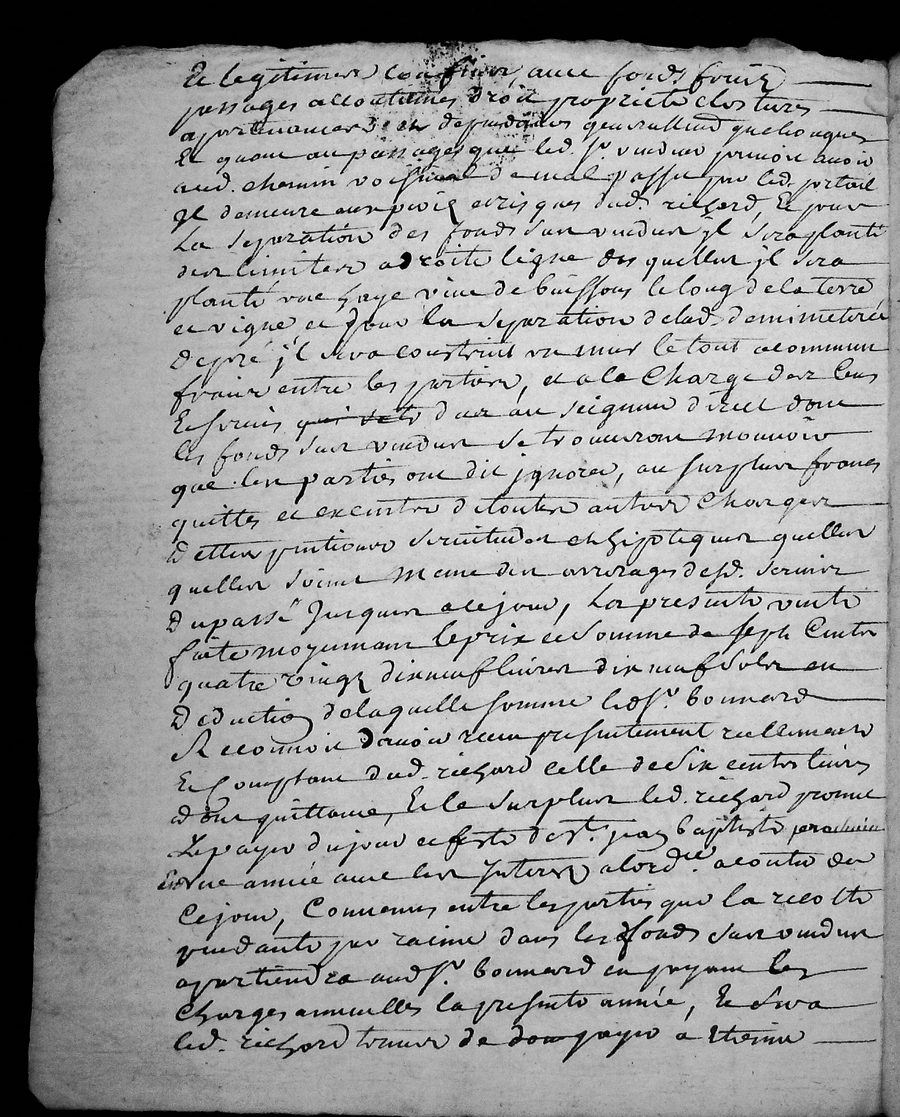 Et legitimes confins, avec fonds fruits
passages accoutumés droits proprieté clostures
apartenances et dependances generallement quelconques
Et quant au passage que led. Sr. vendeur prenoit avoir
aud. chemin voisinal de mal passé par led. portail
Il demeure aux perils et risques dud. richard, Et pour
La separation des fonds sus vendus jl sera planté
des limites a droite ligne des quelles jl sera
planté une haye vive de buissons le long de la terre
et vigne et pour la separation de lad. demi meterée
de pré jl sera construit un mur le tout a commun
fraix entre les parties, et a la Charge des Cens
Et servis dus au seigneur direct dont
les fonds sus vendus se trouveront mouvoir
que les parties ont dit jgnorer, au surplus francs
quittes et exemptes de toutes autres Charges
Dettes pentions servitudes et hipoteques quelles
quelles soient meme des arrerages desd. servis
Du passé Jusques a ce jour, La presente vente
faite moyennant le prix et somme de sept Cents
quatre vingt dix neuf livres dix neuf sols en
Deduction de laquelle somme led. Sr. bonnard
Reconnoit d'avoir receu presentement reellement
Et Comptant dud. richard celle de Six cents livres
Dont quittance, Et le surplus led. richard promet
Le payer du jour et feste de St. jean baptiste prochain
En une année avec les Interets a lord.re a conter de
Ce jour, Convenus entre les parties que la recolte
pendante par racine dans les fonds sus vendus
apartiendra aud. Sr. bonnard en payant les
Charges annuelles la presente année, Et sera
led. richard tenus de payer a Etienne